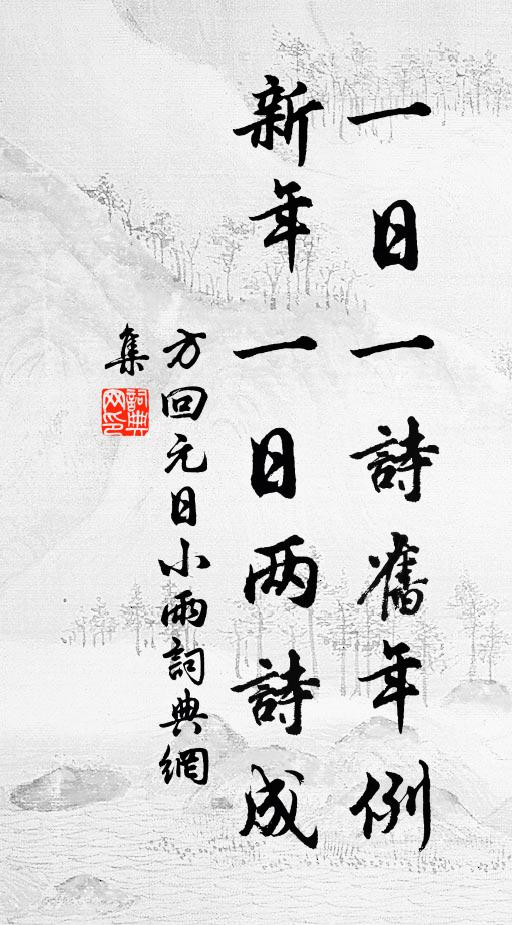 一日一詩舊年例
新年一日两詩成
方回元日小雨詞典網
集
詞典
网印